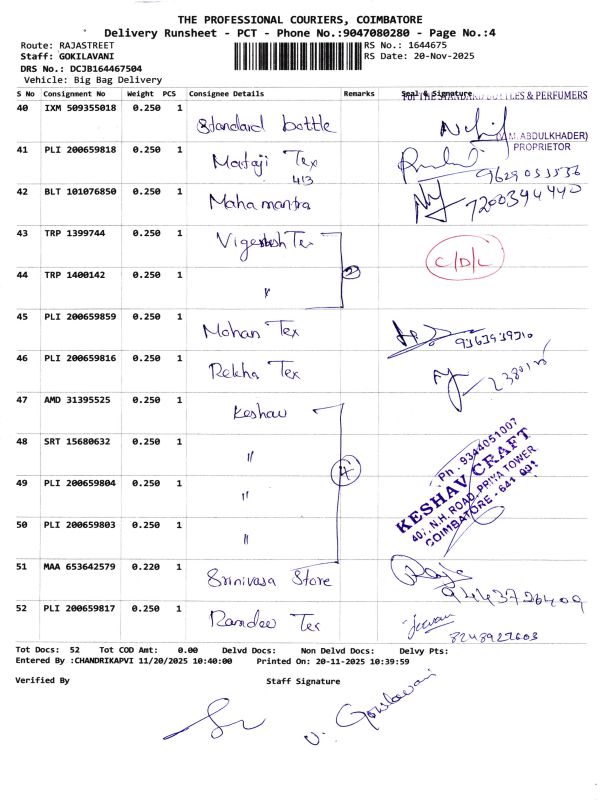 THE PROFESSIONAL COURIERS, COIMBATORE
Delivery Runsheet - PCT - Phone No.:9047080280 - Page No.:4
Route: RAJASTREET RS No.: 1644675
Staff: GOKILAVANI RS Date: 20-Nov-2025
DRS No.: DCJB164467504
Vehicle: Big Bag Delivery
S No Consignment No Weight PCS Consignee Details Remarks Seal & Signature
For THE STANDARD BOTTLES & PERFUMERS
40 IXM 509355018 0.250 1 Standard bottle
(A.M. ABDULKHADER)
PROPRIETOR
41 PLI 200659818 0.250 1 Mataji Tex
413
9629053536
42 BLT 101076850 0.250 1 Maha mantra 7200394440
43 TRP 1399744 0.250 1 Vignesh Tex
C/D/L
44 TRP 1400142 0.250 1 " 2
45 PLI 200659859 0.250 1 Mohan Tex 9363939310
46 PLI 200659816 0.250 1 Rekha Tex
47 AMD 31395525 0.250 1 Keshav
48 SRT 15680632 0.250 1 "
49 PLI 200659804 0.250 1 "
50 PLI 200659803 0.250 1 "
Ph : 9344051007
KESHAV CRAFT
407, N.H. ROAD, PRIYA TOWER
COIMBATORE - 641 001
51 MAA 653642579 0.220 1 Srinivasa Store Raja
9443726409
52 PLI 200659817 0.250 1 Randee Tex Jeevan
8248922603
Tot Docs: 52 Tot COD Amt: 0.00 Delvd Docs: Non Delvd Docs: Delvy Pts:
Entered By :CHANDRIKAPVI 11/20/2025 10:40:00 Printed On: 20-11-2025 10:39:59
Verified By Staff Signature
V. Gokilavani